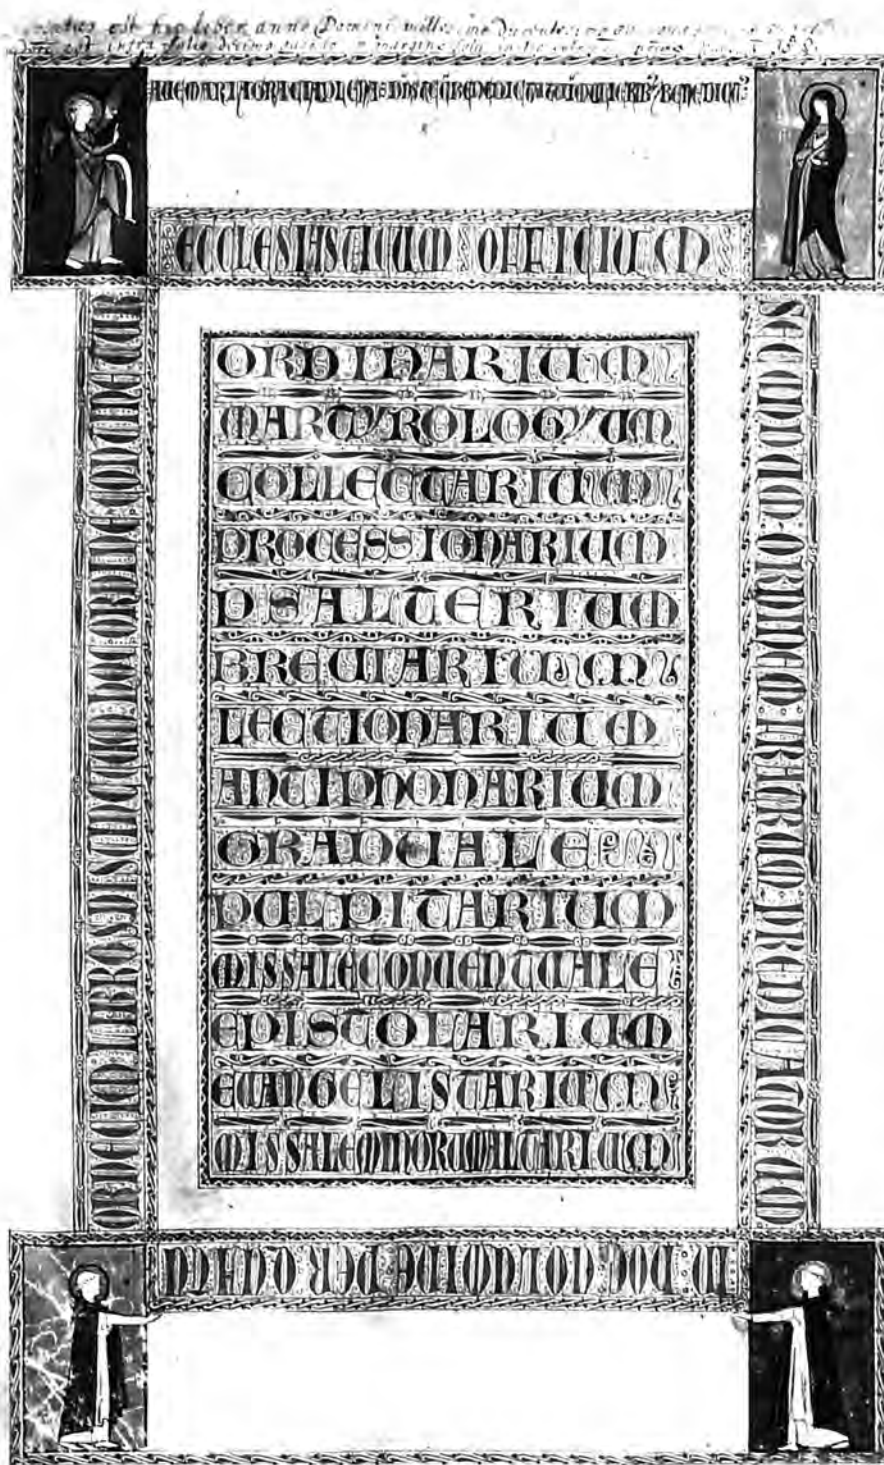 est hic liber anno Domini millesimo ducentesimo
est intra folio decimo quarto in margine
AVE MARIA GRACIA PLENA DNS TECU BENEDICTA TU I MULIERIBꝰ ⁊ BENEDICTꝰ
ECCLESIASTICUM OFFICIUM
SECUNDUM ORDINEM FRATRUM PREDICATORUM
IN HOC VOLUMINE PER QUATU
ORDECIM LIBROS DISTINCTUM HOC ORDINE CONTINETUR
ORDINARIUM
MARTYROLOGYUM
COLLECTARIUM
PROCESSIONARIUM
PSALTERIUM
BREUIARIUM
LECTIONARIUM
ANTIPHONARIUM
GRADUALE
PULPITARIUM
MISSALE CONUENTUALE
EPISTOLARIUM
EUANGELISTARIUM
MISSALE MINORUM ALTARIUM